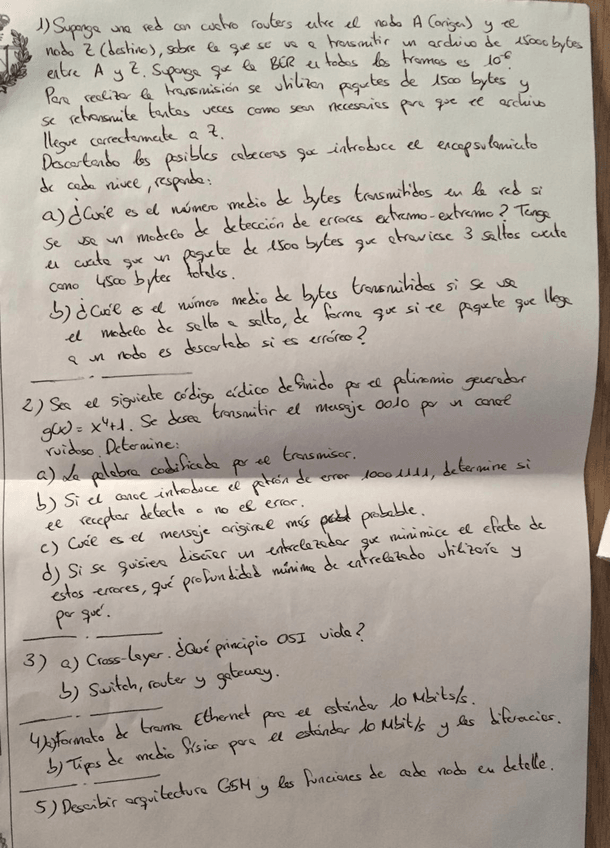 1) Suponga una red con cuatro routers entre el nodo A (origen) y el
nodo Z (destino), sobre la que se va a transmitir un archivo de 15000 bytes
entre A y Z. Suponga que la BER en todos los tramos es 10⁻⁶
Para realizar la transmisión se utilizan paquetes de 1500 bytes y
se retransmite tantas veces como sean necesarias para que el archivo
llegue correctamente a Z.
Descartando las posibles cabeceras que introduce el encapsulamiento
de cada nivel, responda:
a) ¿Cuál es el número medio de bytes transmitidos en la red si
se usa un modelo de detección de errores extremo-extremo? Tenga
en cuenta que un paquete de 1500 bytes que atraviese 3 saltos cuenta
como 4500 bytes totales.
b) ¿Cuál es el número medio de bytes transmitidos si se usa
el modelo de salto a salto, de forma que si el paquete que llega
a un nodo es descartado si es erróneo?
2) Sea el siguiente código cíclico definido por el polinomio generador
g(x) = x⁴+1. Se desea transmitir el mensaje 0010 por un canal
ruidoso. Determine:
a) La palabra codificada por el transmisor.
b) Si el canal introduce el patrón de error 10001111, determine si
el receptor detecta o no el error.
c) Cuál es el mensaje original más probable.
d) Si se quisiera diseñar un entrelazador que minimice el efecto de
estos errores, qué profundidad mínima de entrelazado utilizaría y
por qué.
3) a) Cross-Layer. ¿Qué principio OSI viola?
b) Switch, router y gateway.
4) a) Formato de trama Ethernet para el estándar 10 Mbits/s.
b) Tipos de medio físico para el estándar 10 Mbit/s y las diferencias.
5) Describir arquitectura GSM y las funciones de cada nodo en detalle.